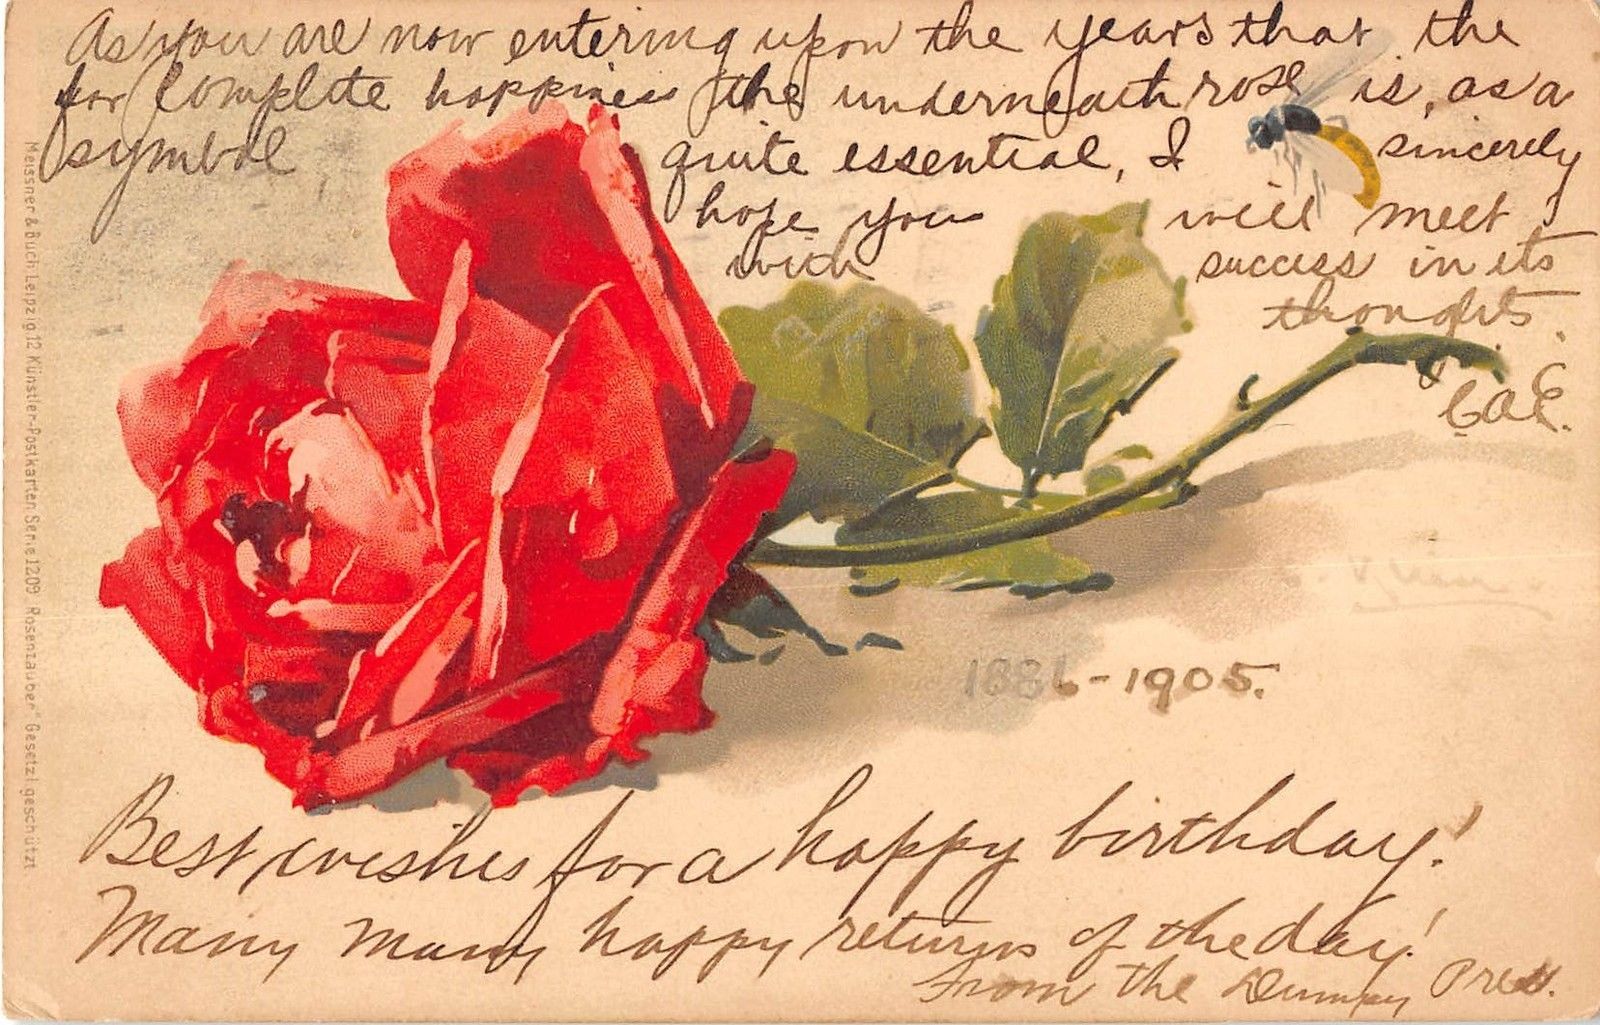 As you are now entering upon the years that the
for complete happiness the underneath rose is, as a
symbol quite essential, I sincerely
hope you will meet
with success in its
thoughts.
Best wishes for a happy birthday!
Many many happy returns of the day!
From the Dummy
1886-1905.
Meissner & Buch Leipzig 12 Künstler-Postkarten Serie 1209 "Rosenzauber" Gesetzl. geschützt